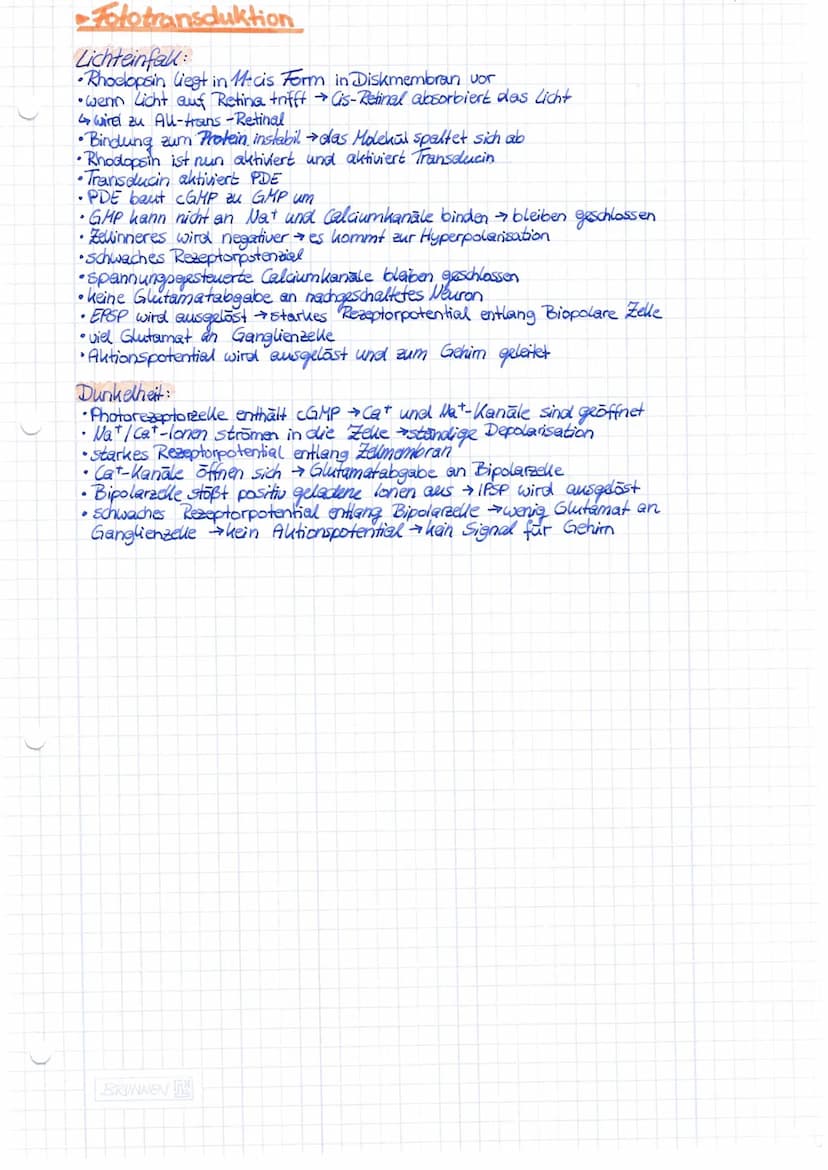 ▸Fototransduktion
Lichteinfall:
• Rhodopsin liegt in 11-cis Form in Diskmembran vor
• wenn Licht auf Retina trifft → Cis-Retinal absorbiert das Licht
↳ wird zu All-trans-Retinal
• Bindung zum Protein instabil → das Molekül spaltet sich ab
• Rhodopsin ist nun aktiviert und aktiviert Transducin
• Transducin aktiviert PDE
• PDE baut cGMP zu GMP um
• GMP kann nicht an Na+ und Calciumkanäle binden → bleiben geschlossen
• Zellinneres wird negativer → es kommt zur Hyperpolarisation
• schwaches Rezeptorpotenzial
• spannungsgesteuerte Calciumkanäle bleiben geschlossen
• keine Glutamatabgabe an nachgeschaltetes Neuron
• EPSP wird ausgelöst → starkes Rezeptorpotential entlang Biopolare Zelle
• viel Glutamat an Ganglienzelle
• Aktionspotential wird ausgelöst und zum Gehirn geleitet
Dunkelheit:
• Photorezeptorzelle enthält cGMP → Ca+ und Na+-Kanäle sind geöffnet
• Na+/Ca+-Ionen strömen in die Zelle → ständige Depolarisation
• starkes Rezeptorpotential entlang Zellmembran
• Ca+-Kanäle öffnen sich → Glutamatabgabe an Bipolarzelle
• Bipolarzelle stößt positiv geladene Ionen aus → IPSP wird ausgelöst
• schwaches Rezeptorpotential entlang Bipolarzelle → wenig Glutamat an
Ganglienzelle → kein Aktionspotential → kein Signal für Gehirn
BRUNNEN